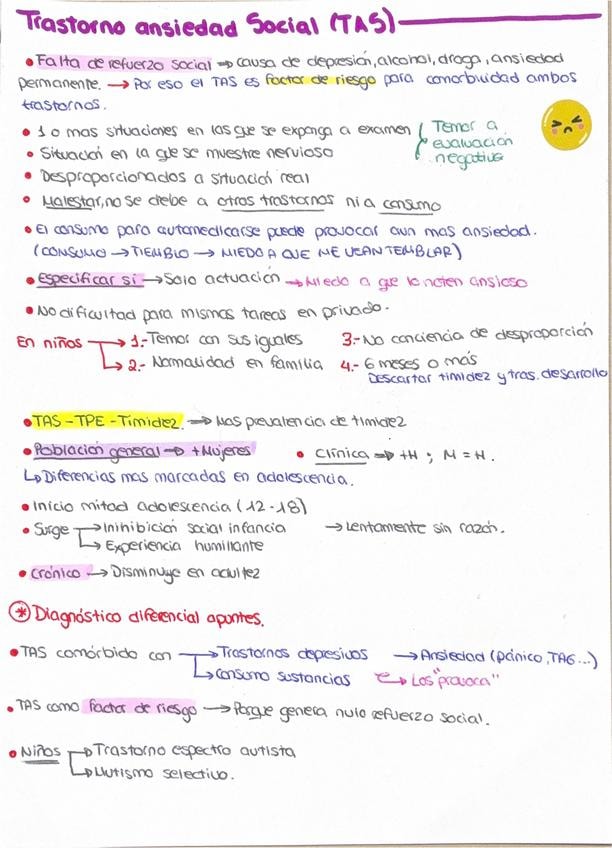 Trastorno ansiedad Social (TAS)
• Falta de refuerzo social → causa de depresión, alcohol, droga, ansiedad
permanente. → Por eso el TAS es factor de riesgo para comorbilidad ambos
trastornos.
• 1 o mas situaciones en las que se exponga a examen
• Situación en la que se muestre nervioso
Temor a
evaluación
negativa
• Desproporcionados a situación real
• Malestar, no se debe a otros trastornos ni a consumo
• El consumo para automedicarse puede provocar aun mas ansiedad.
(CONSUMO → TIEMBLO → MIEDO A QUE ME VEAN TEMBLAR)
• Especificar si → Solo actuación → Miedo a que le noten ansioso
• No dificultad para mismas tareas en privado.
En niños → 1.- Temor con sus iguales 3.- No conciencia de desproporción
→ 2.- Normalidad en familia 4.- 6 meses o más
Descartar timidez y tras. desarrollo
• TAS - TPE - Timidez. → Mas prevalencia de timidez
• Población general → + Mujeres • Clínica → +H ; M = H.
↳ Diferencias mas marcadas en adolescencia.
• Inicio mitad adolescencia (12 - 18)
• Surge → Inihibición social infancia → Lentamente sin razón.
→ Experiencia humillante
• Crónico → Disminuye en adultez
* Diagnóstico diferencial apuntes.
• TAS comórbido con → Trastornos depresivos → Ansiedad (pánico, TAG...)
→ Consumo sustancias → Los "provoca"
• TAS como factor de riesgo → Porque genera nulo refuerzo social.
• Niños → Trastorno espectro autista
→ Mutismo selectivo.